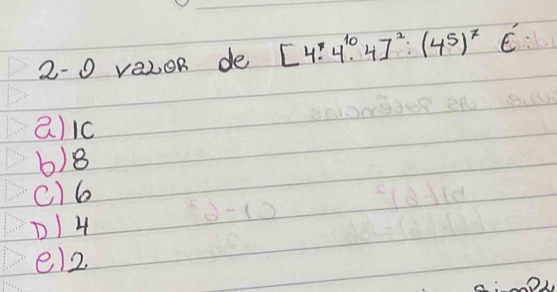 2-O valor de [4⁷. 4¹⁰. 4]²: (4⁵)⁷ É:
a) 16
b) 8
c) 6
D) 4
e) 2